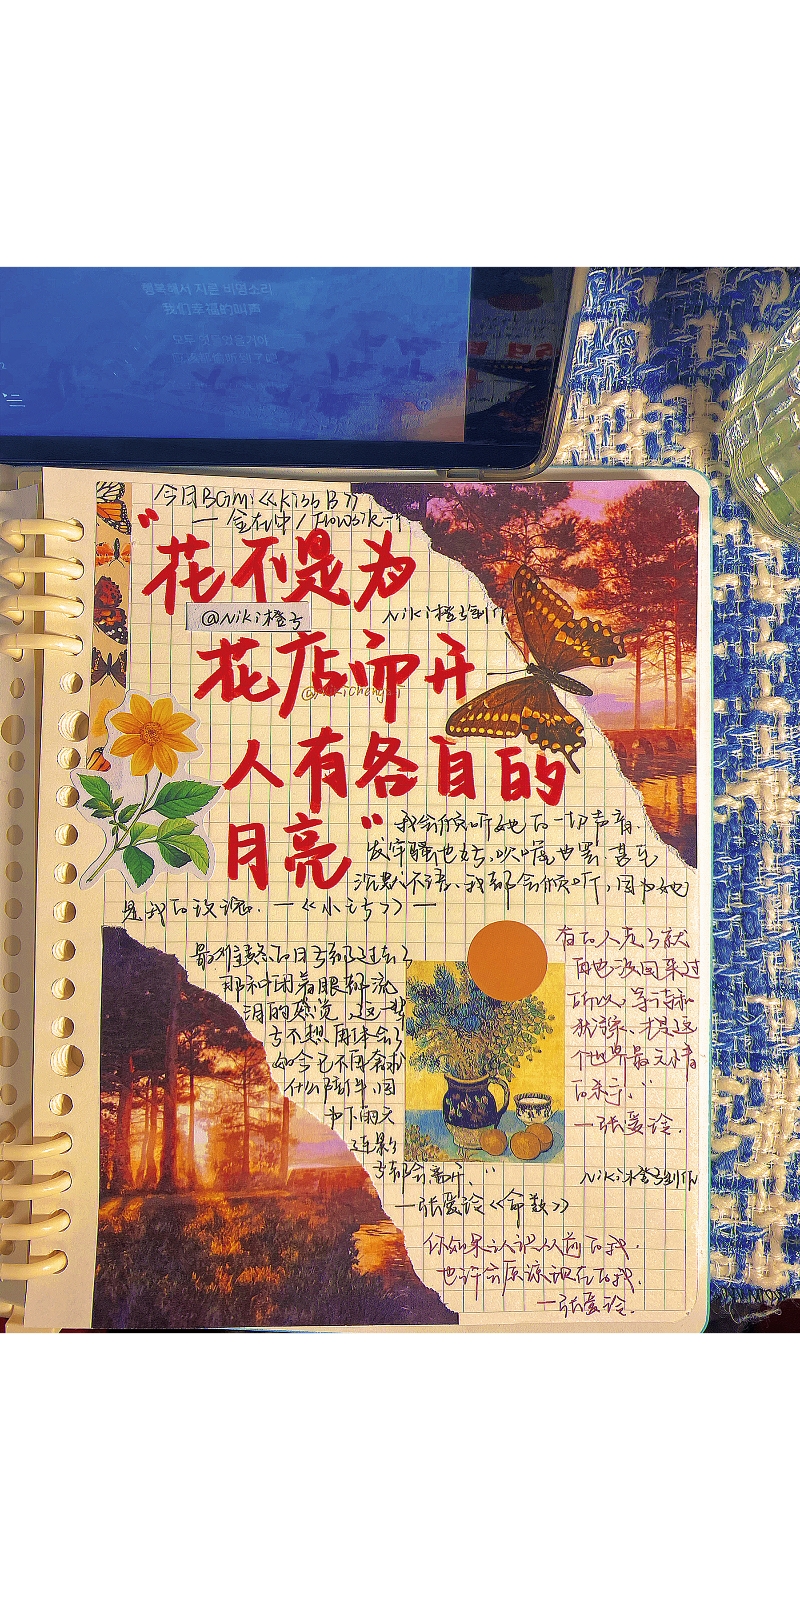 행복해서 지른 비명소리
我们幸福的叫声
今日BGM:《Kiss B》
— 金在中 /
“花不是为
@Niki橙兮
Niki橙兮制作
花店而开
人有各自的
月亮”
我会倾听她的一切声音.
发牢骚也好,吹嘘也罢 甚至
沉默不语、我都会倾听,因为她
是我的玫瑰. —《小王子》—
有的人走了就
再也没回来过
所以,等待和
犹豫、才是这
个世界最无情
的杀手.”
— 张爱玲.
最难熬的日子都过去了
那种闭着眼都流
泪的感觉,这一辈
子不想再体会了
如今已不再奢求
什么陪伴,因
为下雨天
连影
子都会离开.”
— 张爱玲《命数》
Niki橙兮制作
你如果认识从前的我.
也许会原谅现在的我.
— 张爱玲.